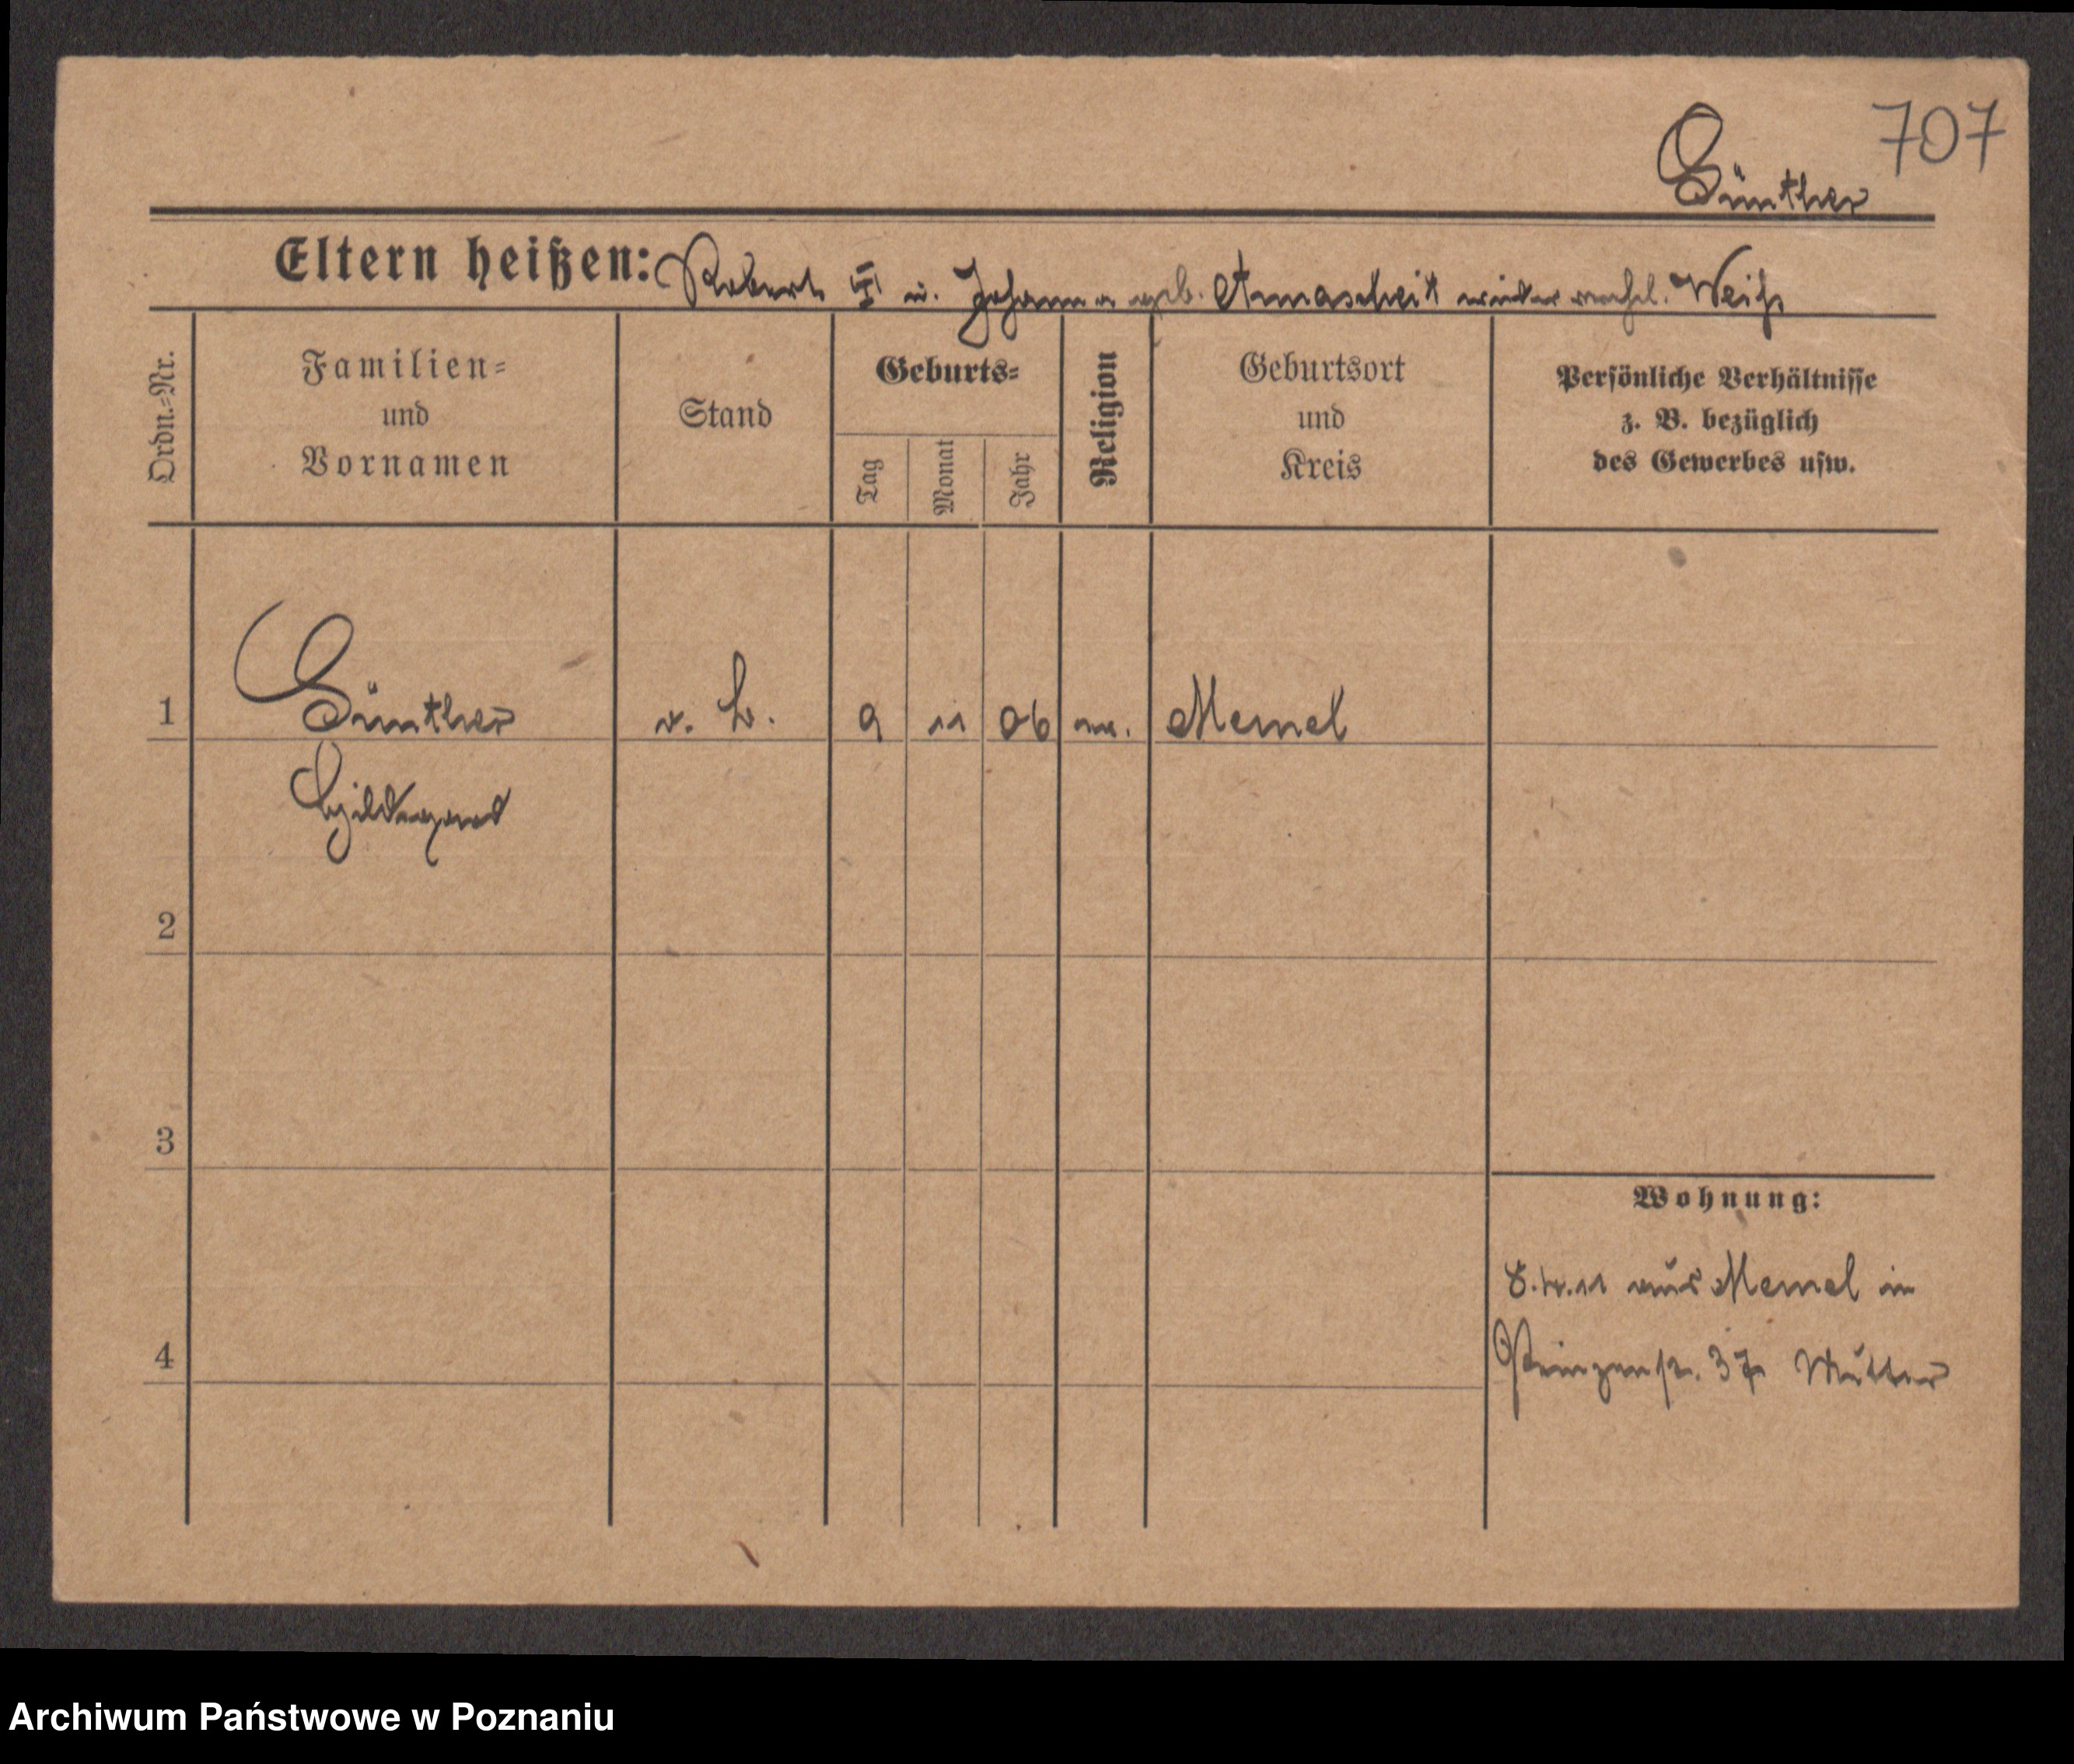 707
Günther
Eltern heißen: Robert III u. Johanna geb. Amascheit wiederverehel. Weiß
Ordn.-Nr.
Familien-
und
Vornamen
Stand
Geburts-
Tag
Monat
Jahr
Religion
Geburtsort
und
Kreis
Persönliche Verhältnisse
z. B. bezüglich
des Gewerbes usw.
1 Günther o. B. 9 11 06 ev. Memel
Hildegard
2
3
Wohnung:
8.4.11 aus Memel in
4
Prinzenstr. 37 Mutter
Archiwum Państwowe w Poznaniu